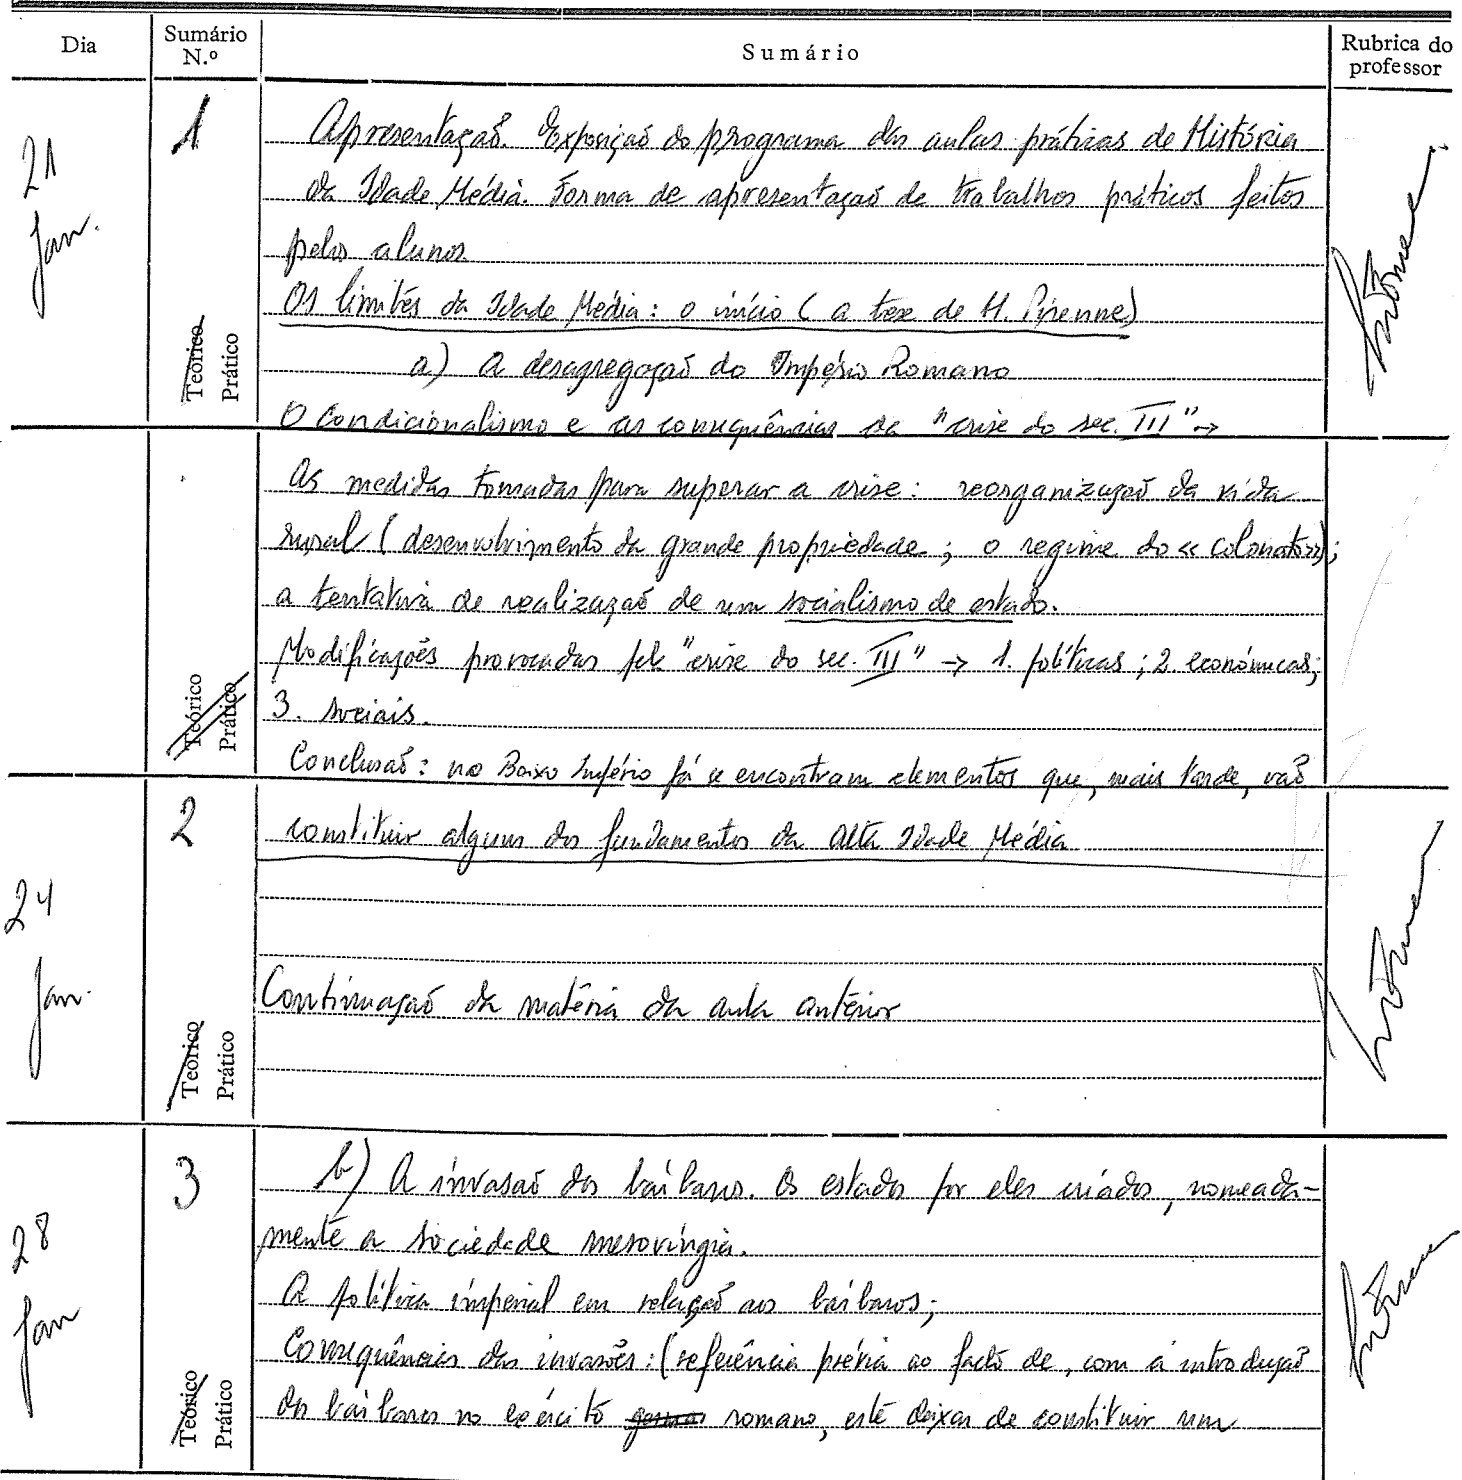 Dia
Sumário N.º
Sumário
Rubrica do professor
21 Jan.
1
Teórico
Prático
Apresentação. Exposição do programa das aulas práticas de História
da Idade Média. Forma de apresentação de trabalhos práticos feitos
pelos alunos
Os limites da Idade Média: o início (a tese de H. Pirenne)
a) A desagregação do Império Romano
O condicionalismo e as consequências da "crise do sec. III" →
Teórico
Prático
As medidas tomadas para superar a crise: reorganização da vida
rural (desenvolvimento da grande propriedade; o regime do «colonato»);
a tentativa de realização de um socialismo de estado.
Modificações provocadas pela "crise do sec. III" → 1. políticas; 2 económicas;
3. sociais.
Conclusão: no Baixo Império já se encontram elementos que, mais tarde, vão
24 Jan.
2
Teórico
Prático
constituir alguns dos fundamentos da Alta Idade Média
Continuação da matéria da aula anterior
28 Jan
3
Teórico
Prático
b) A invasão dos bárbaros. Os estados por eles criados, nomeada-
mente a sociedade merovíngia.
A política imperial em relação aos bárbaros;
Consequências das invasões: (referência prévia ao facto de, com a introdução
dos bárbaros no exército romano, este deixar de constituir um